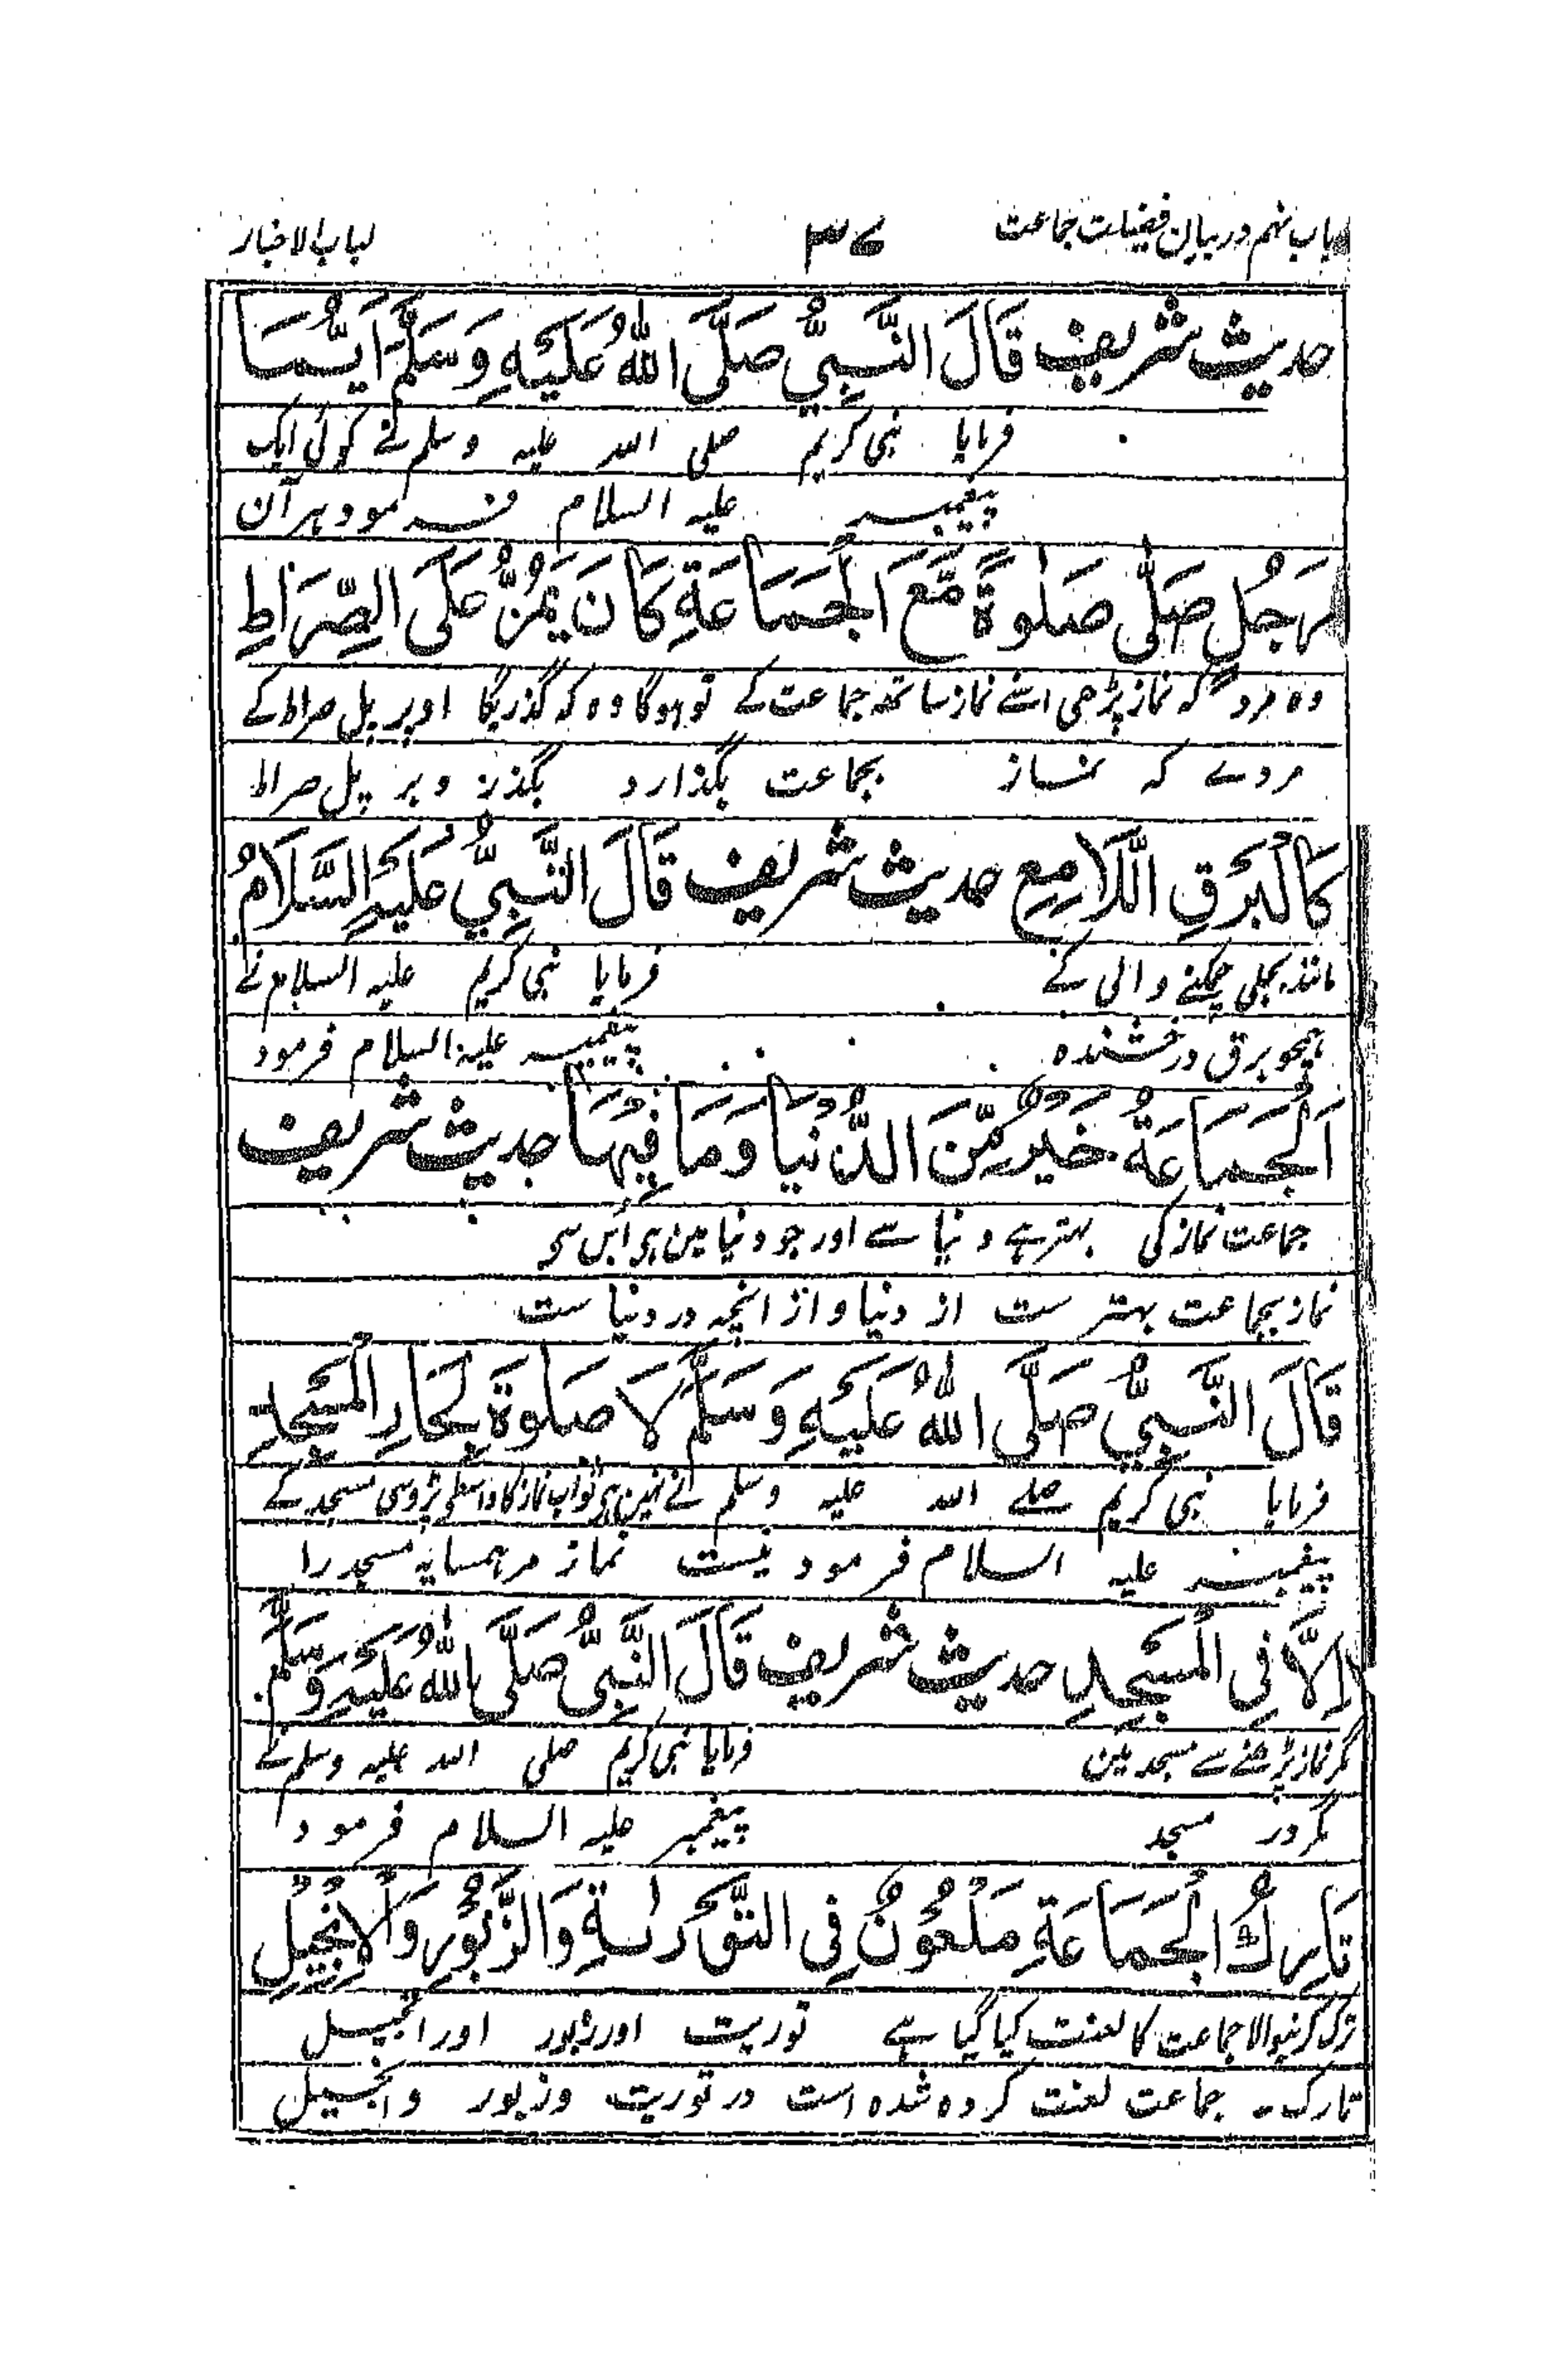 باب نہم در بیان فضیلت جماعت ۳۷ لباب الاخبار
حدیث شریف قَالَ النَّبِیُّ صَلَّی اللّٰهُ عَلَیْهِ وَسَلَّمَ اَیُّمَا
فرمایا نبی کریم صلی اللہ علیہ وسلم نے کوئی ایک
پیغمبر علیہ السلام فرمود ہر آن
رَجُلٍ صَلّٰی صَلٰوةً مَّعَ الْجَمَاعَةِ كَانَ یَمُرُّ عَلَی الصِّرَاطِ
وہ مرد کہ نماز پڑھی اسنے نماز ساتھ جماعت کے تو ہوگا وہ کہ گذریگا اوپر پل صراط کے
مردے کہ نماز بجماعت بگذارد بگذرد و بر پل صراط
كَالْبَرْقِ اللَّامِعِ حدیث شریف قَالَ النَّبِیُّ عَلَیْهِ السَّلَامُ
مانند بجلی چمکنے والی کے فرمایا نبی کریم علیہ السلام نے
ہمچو برق درخشندہ پیغمبر علیہ السلام فرمود
اَلْجَمَاعَةُ خَیْرٌ مِّنَ الدُّنْیَا وَمَا فِیْهَا حدیث شریف
جماعت نماز کی بہتر ہے دنیا سے اور جو دنیا مین ہی اُس سی
نماز بجماعت بہتر ست از دنیا و از انچہ در دنیا ست
قَالَ النَّبِیُّ صَلَّی اللّٰهُ عَلَیْهِ وَسَلَّمَ لَا صَلٰوةَ لِجَارِ الْمَسْجِدِ
فرمایا نبی کریم صلے اللہ علیہ وسلم نے نہین ہی ثواب نماز کا واسطی پڑوسی مسجد کے
پیغمبر علیہ السلام فرمود نیست نماز مر ہمسایہ مسجد را
اِلَّا فِی الْمَسْجِدِ حدیث شریف قَالَ النَّبِیُّ صَلَّی اللّٰهُ عَلَیْهِ وَسَلَّمَ
مگر نماز پڑھنے سے مسجد مین فرمایا نبی کریم صلی اللہ علیہ وسلم نے
مگر در مسجد پیغمبر علیہ السلام فرمود
تَارِكُ الْجَمَاعَةِ مَلْعُوْنٌ فِی التَّوْرٰىةِ وَالزَّبُوْرِ وَالْاِنْجِیْلِ
ترک کرنیوالا جماعت کا لعنت کیا گیا ہے توریت اور زبور اور انجیل
تارک جماعت لعنت کردہ شدہ است در توریت و زبور و انجیل